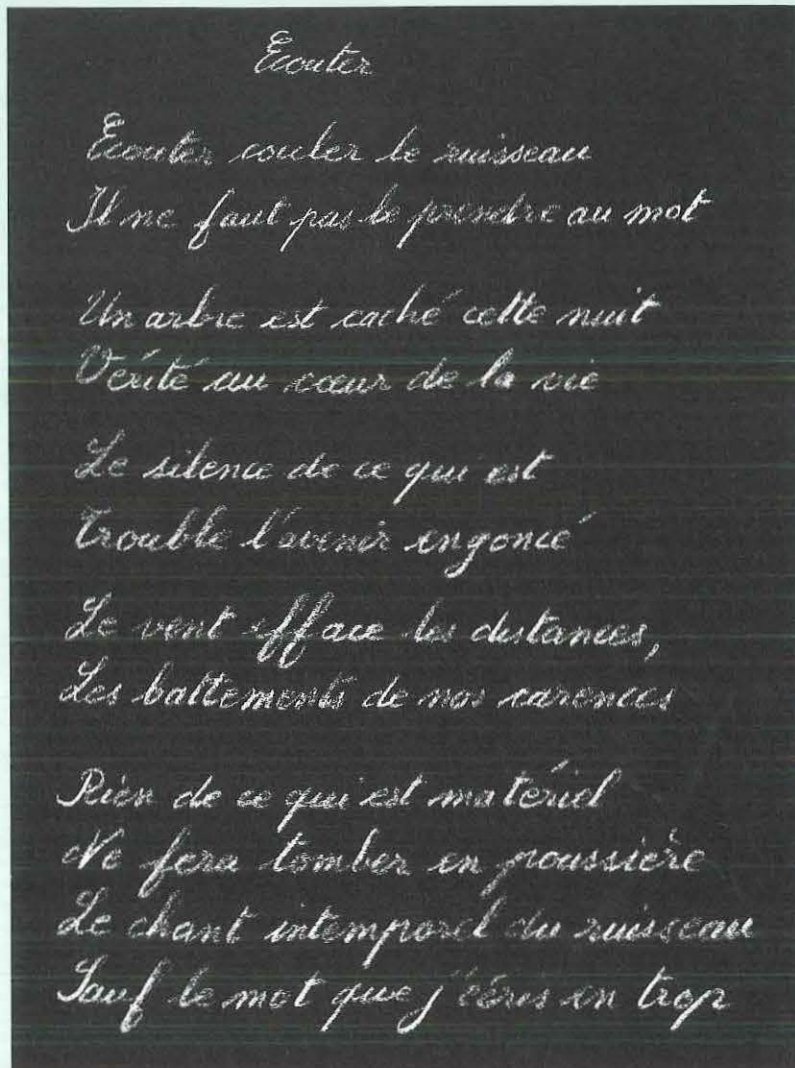 Ecouter
Ecouter couler le ruisseau
Il ne faut pas le prendre au mot
Un arbre est caché cette nuit
Vérité au cœur de la vie
Le silence de ce qui est
Trouble l'avenir engoncé
Le vent efface les distances,
Les battements de nos carences
Rien de ce qui est matériel
Ne fera tomber en poussière
Le chant intemporel du ruisseau
Sauf le mot que j'écris en trop